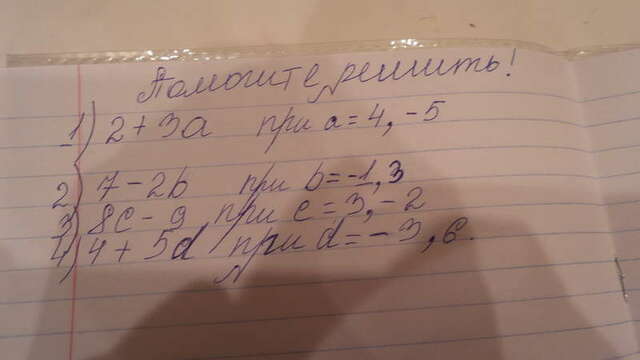 Помогите, решить!
1) 2+3a при a=4, -5
2) 7-2b при b=-1, 3
3) 8c-9 при c=3, -2
4) 4+5d при d=-3, 6.